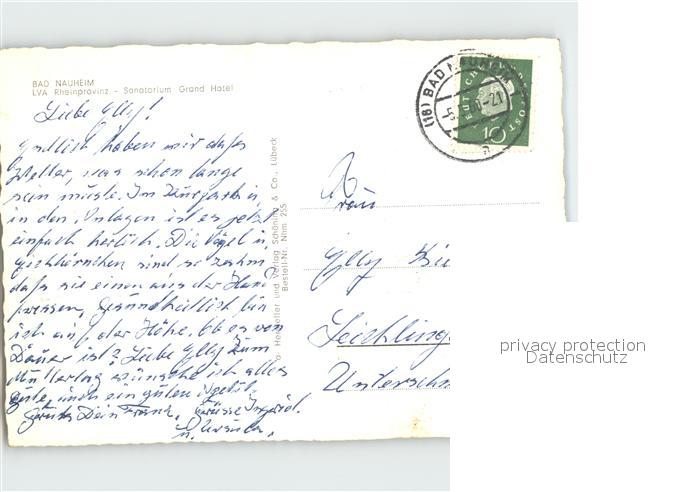 BAD NAUHEIM
LVA Rheinprovinz - Sanatorium Grand Hotel
Liebe Elly!
Endlich haben wir das
Wetter, was schon lange
sein müsste. Im Kurpark u.
in den Anlagen ist es jetzt
einfach herlich. Die Vögel u.
Eichhörnchen sind so zahm
daß sie einem aus der Hand
fressen. Gesundheitlich bin
ich auf der Höhe. Ob es von
Dauer ist? Liebe Elly zum
Muttertag wünsche ich alles
gute, und ein guten
Grüße Dein Franz. Grüsse Ingrid.
u. Ursula.
Hersteller und Verlag Schöning & Co., Lübeck
Bestell-Nr. Nhm 255
(16) BAD NAUHEIM
a
DEUTSCHE BUNDESPOST
10
Frau
Elly
Leichling
Unterschm
privacy protection
Datenschutz